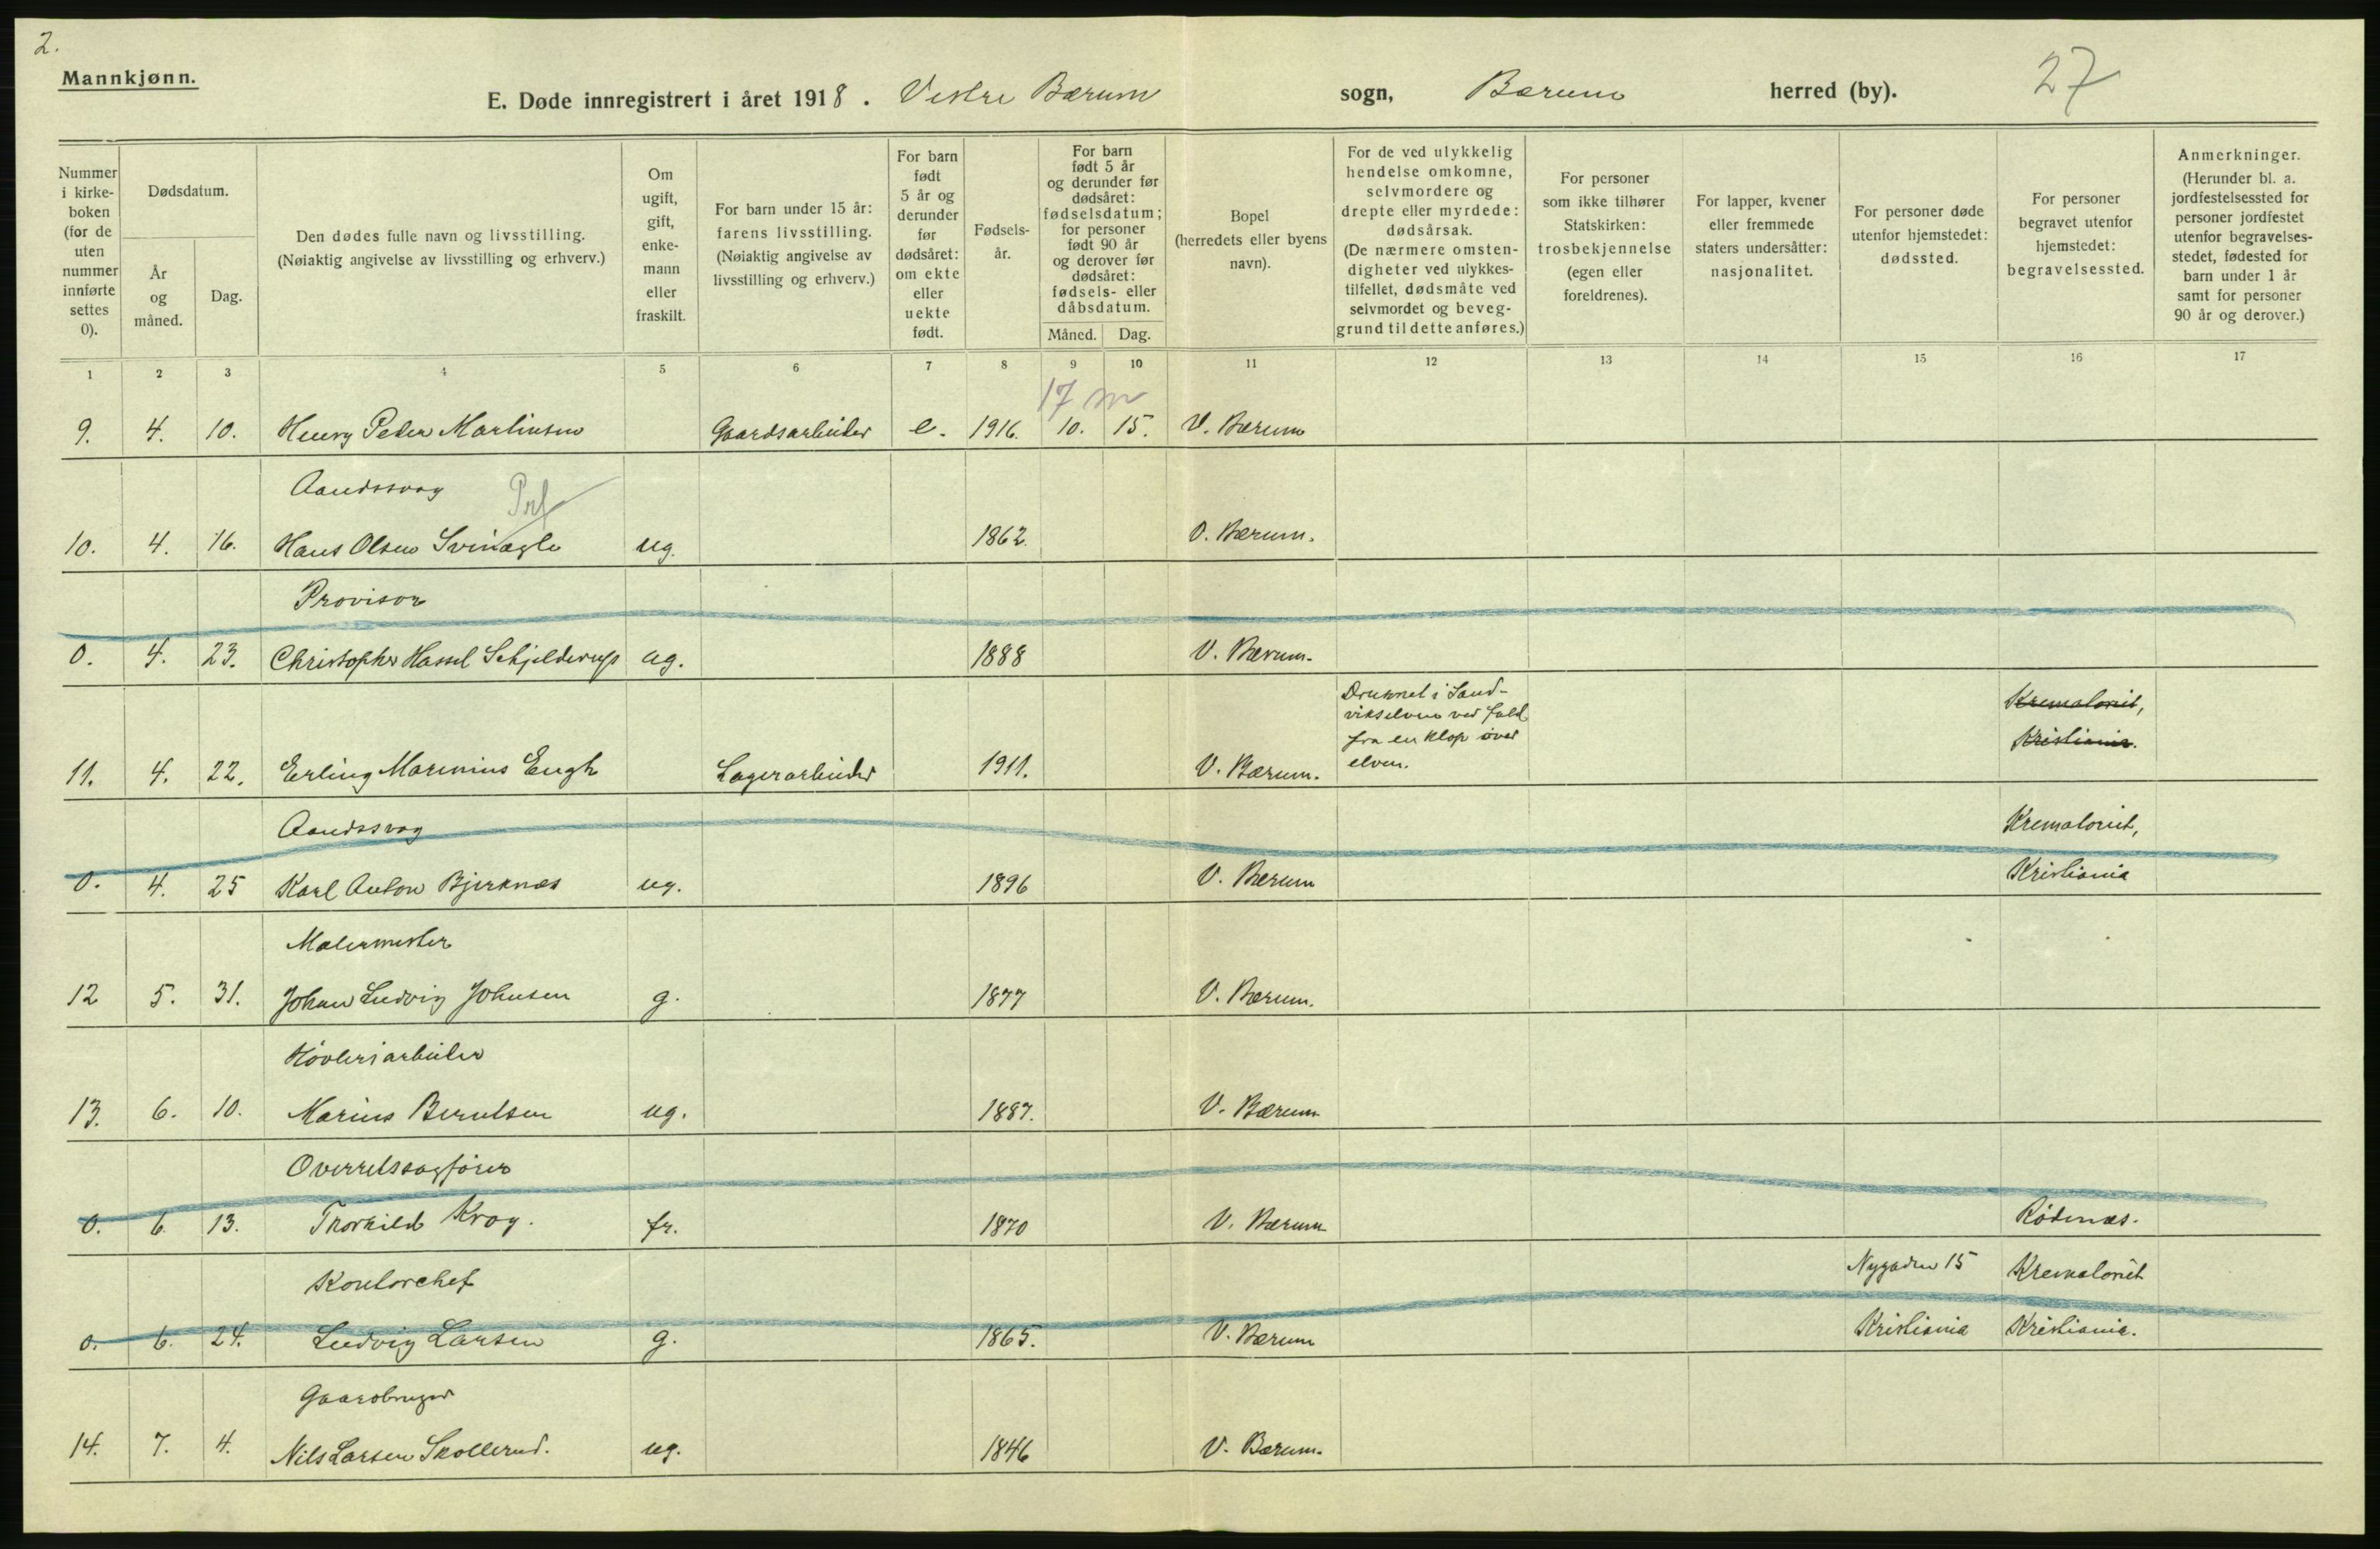 2.
Mannkjønn.
E. Døde innregistrert i året 1918. Vestre Bærum sogn, Bærum herred (by). 27
Nummer i kirkeboken (for de uten nummer innførte settes 0).
Dødsdatum.
År og måned.
Dag.
Den dødes fulle navn og livsstilling. (Nøiaktig angivelse av livsstilling og erhverv.)
Om ugift, gift, enkemann eller fraskilt.
For barn under 15 år: farens livsstilling. (Nøiaktig angivelse av livsstilling og erhverv.)
For barn født 5 år og derunder før dødsåret: om ekte eller uekte født.
Fødselsår.
For barn født 5 år og derunder før dødsåret: fødselsdatum; for personer født 90 år og derover før dødsåret: fødsels- eller dåbsdatum.
Måned. Dag.
Bopel (herredets eller byens navn).
For de ved ulykkelig hendelse omkomne, selvmordere og drepte eller myrdede: dødsårsak. (De nærmere omstendigheter ved ulykkestilfellet, dødsmåte ved selvmordet og beveggrund til dette anføres.)
For personer som ikke tilhører Statskirken: trosbekjennelse (egen eller foreldrenes).
For lapper, kvener eller fremmede staters undersåtter: nasjonalitet.
For personer døde utenfor hjemstedet: dødssted.
For personer begravet utenfor hjemstedet: begravelsessted.
Anmerkninger. (Herunder bl. a. jordfestelsessted for personer jordfestet utenfor begravelsesstedet, fødested for barn under 1 år samt for personer 90 år og derover.)
1 2 3 4 5 6 7 8 9 10 11 12 13 14 15 16 17
17 m
9. 4. 10. Henry Peder Martinsen Gaardsarbeider e. 1916. 10. 15. V. Bærum
Aandssvag Prf
10. 4. 16. Hans Olsen Svinagle ug. 1862. V. Bærum.
Provisor
0. 4. 23. Christopher Hassel Schjelderup ug. 1888 V. Bærum.
Druknet i Sand-
vikselven ved fald
fra en klop over
elven.
Krematoriet,
Kristiania.
11. 4. 22. Erling Marinius Engh Lagerarbeider 1911. V. Bærum.
Aandssvag Krematoriet,
0. 4. 25 Karl Anton Bjerknæs ug. 1896 V. Bærum Kristiania
Malermester
12 5. 31. Johan Ludvig Johnsen g. 1877 V. Bærum.
Høvleriarbeider
13. 6. 10. Marius Berntsen ug. 1887. V. Bærum
Overretssagfører
0. 6. 13. Thorkild Krog. fr. 1870 V. Bærum Rødenæs.
Kontorchef Nygaden 15 Krematoriet
0. 6. 24. Ludvig Larsen g. 1865. V. Bærum Kristiania Kristiania.
Gaardbruger
14. 7. 4. Nils Larsen Skollerud. ug. 1846 V. Bærum.